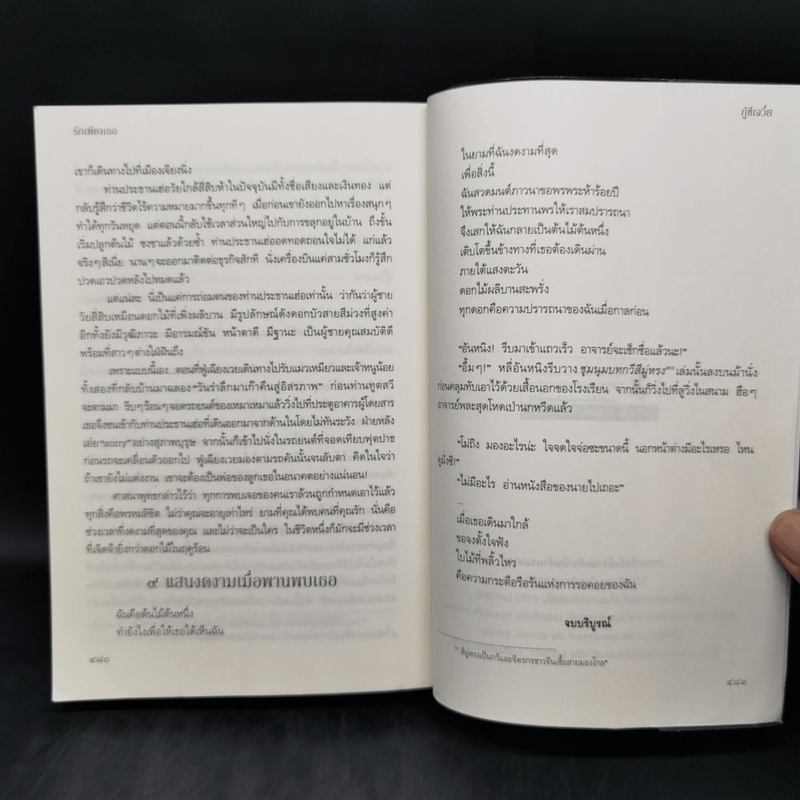 รักเพียงเธอ
เขาก็เดินทางไปที่เมืองเจียงนิ่ง
ท่านประธานเฮ่อวัยใกล้สี่สิบห้าในปัจจุบันมีทั้งชื่อเสียงและเงินทอง แต่
กลับรู้สึกว่าชีวิตไร้ความหมายมากขึ้นทุกทีๆ เมื่อก่อนเขายังออกไปหาเรื่องสนุกๆ
ทำได้ทุกวันหยุด แต่ตอนนี้กลับใช้เวลาส่วนใหญ่ไปกับการขลุกอยู่ในบ้าน ถึงขั้น
เริ่มปลูกต้นไม้ ชงชาแล้วด้วยซ้ำ ท่านประธานเฮ่ออดทอดถอนใจไม่ได้ แก่แล้ว
จริงๆสิเนี่ย นานๆจะออกมาติดต่อธุรกิจสักที นั่งเครื่องบินแค่สามชั่วโมงก็รู้สึก
ปวดเอวปวดหลังไปหมดแล้ว
แต่แน่ละ นี่เป็นแค่การถ่อมตนของท่านประธานเฮ่อเท่านั้น ว่ากันว่าผู้ชาย
วัยสี่สิบเหมือนดอกไม้ที่เพิ่งผลิบาน มีรูปลักษณ์ดังดอกบัวสายสีม่วงที่สูงค่า
อีกทั้งยังมีวุฒิภาวะ มีอารมณ์ขัน หน้าตาดี มีฐานะ เป็นผู้ชายคุณสมบัติดี
พร้อมที่สาวๆต่างใฝ่ฝันถึง
เพราะแบบนี้เอง ตอนที่ฟู่เฉียงเวยเดินทางไปรับแมวเหมียวและเจ้าหนูน้อย
ทั้งสองที่กลับบ้านมาฉลอง “วันรำลึกมาเก๊าคืนสู่อิสรภาพ” ก่อนท่านทูตสวี
จะตามมา รีบๆร้อนๆจอดรถยนต์ของเหมาเหมาแล้ววิ่งไปที่ประตูอาคารผู้โดยสาร
เธอจึงชนเข้ากับท่านประธานเฮ่อที่เดินออกมาจากด้านในโดยไม่ทันระวัง ฝ่ายหลัง
เอ่ย “sorry” อย่างสุภาพบุรุษ จากนั้นก็เข้าไปนั่งในรถยนต์ที่จอดเทียบฟุตปาธ
ก่อนรถจะเคลื่อนตัวออกไป ฟู่เฉียงเวยมองตามรถคันนั้นจนลับตา คิดในใจว่า
ถ้าเขายังไม่แต่งงาน เขาจะต้องเป็นพ่อของลูกเธอในอนาคตอย่างแน่นอน!
ศาสนาพุทธกล่าวไว้ว่า ทุกการพบเจอของคนเราล้วนถูกกำหนดเอาไว้แล้ว
ทุกสิ่งคือพรหมลิขิต ไม่ว่าคุณจะอายุเท่าไหร่ ยามที่คุณได้พบคนที่คุณรัก นั่นคือ
ช่วงเวลาที่งดงามที่สุดของคุณ และไม่ว่าจะเป็นใคร ในชีวิตหนึ่งก็มักจะมีช่วงเวลา
ที่เจิดจ้ายิ่งกว่าดอกไม้ในฤดูร้อน
๙ แสนงดงามเมื่อพานพบเธอ
ฉันคือต้นไม้ต้นหนึ่ง
ทำยังไงเพื่อให้เธอได้เห็นฉัน
๔๘๐
กู้ซีเจวี๋ย
ในยามที่ฉันงดงามที่สุด
เพื่อสิ่งนี้
ฉันสวดมนต์ภาวนาขอพรพระห้าร้อยปี
ให้พระท่านประทานพรให้เราสมปรารถนา
จึงเสกให้ฉันกลายเป็นต้นไม้ต้นหนึ่ง
เติบโตขึ้นข้างทางที่เธอต้องเดินผ่าน
ภายใต้แสงตะวัน
ดอกไม้ผลิบานสะพรั่ง
ทุกดอกคือความปรารถนาของฉันเมื่อกาลก่อน
“อันหนิง! รีบมาเข้าแถวเร็ว อาจารย์จะเช็กชื่อแล้วนะ!”
“อื้มๆ!” หลี่อันหนิงรีบวาง ชุมนุมบทกวีสีมู่หรง เล่มนั้นลงบนม้านั่ง
ก่อนคลุมทับเอาไว้ด้วยเสื้อนอกของโรงเรียน จากนั้นก็วิ่งไปที่ลู่วิ่งในสนาม ฮือๆ
อาจารย์พละสุดโหดเป่านกหวีดแล้ว
“โม่ถิง มองอะไรน่ะ ใจจดใจจ่อซะขนาดนี้ นอกหน้าต่างมีอะไรเหรอ ไหน
ดูมั่งซิ!”
“ไม่มีอะไร อ่านหนังสือของนายไปเถอะ”
...
เมื่อเธอเดินมาใกล้
ขอจงตั้งใจฟัง
ใบไม้ที่พลิ้วไหว
คือความกระตือรือร้นแห่งการรอคอยของฉัน
จบบริบูรณ์
สีมู่หรงเป็นกวีและจิตรกรชาวจีนเชื้อสายมองโกล
๔๘๑